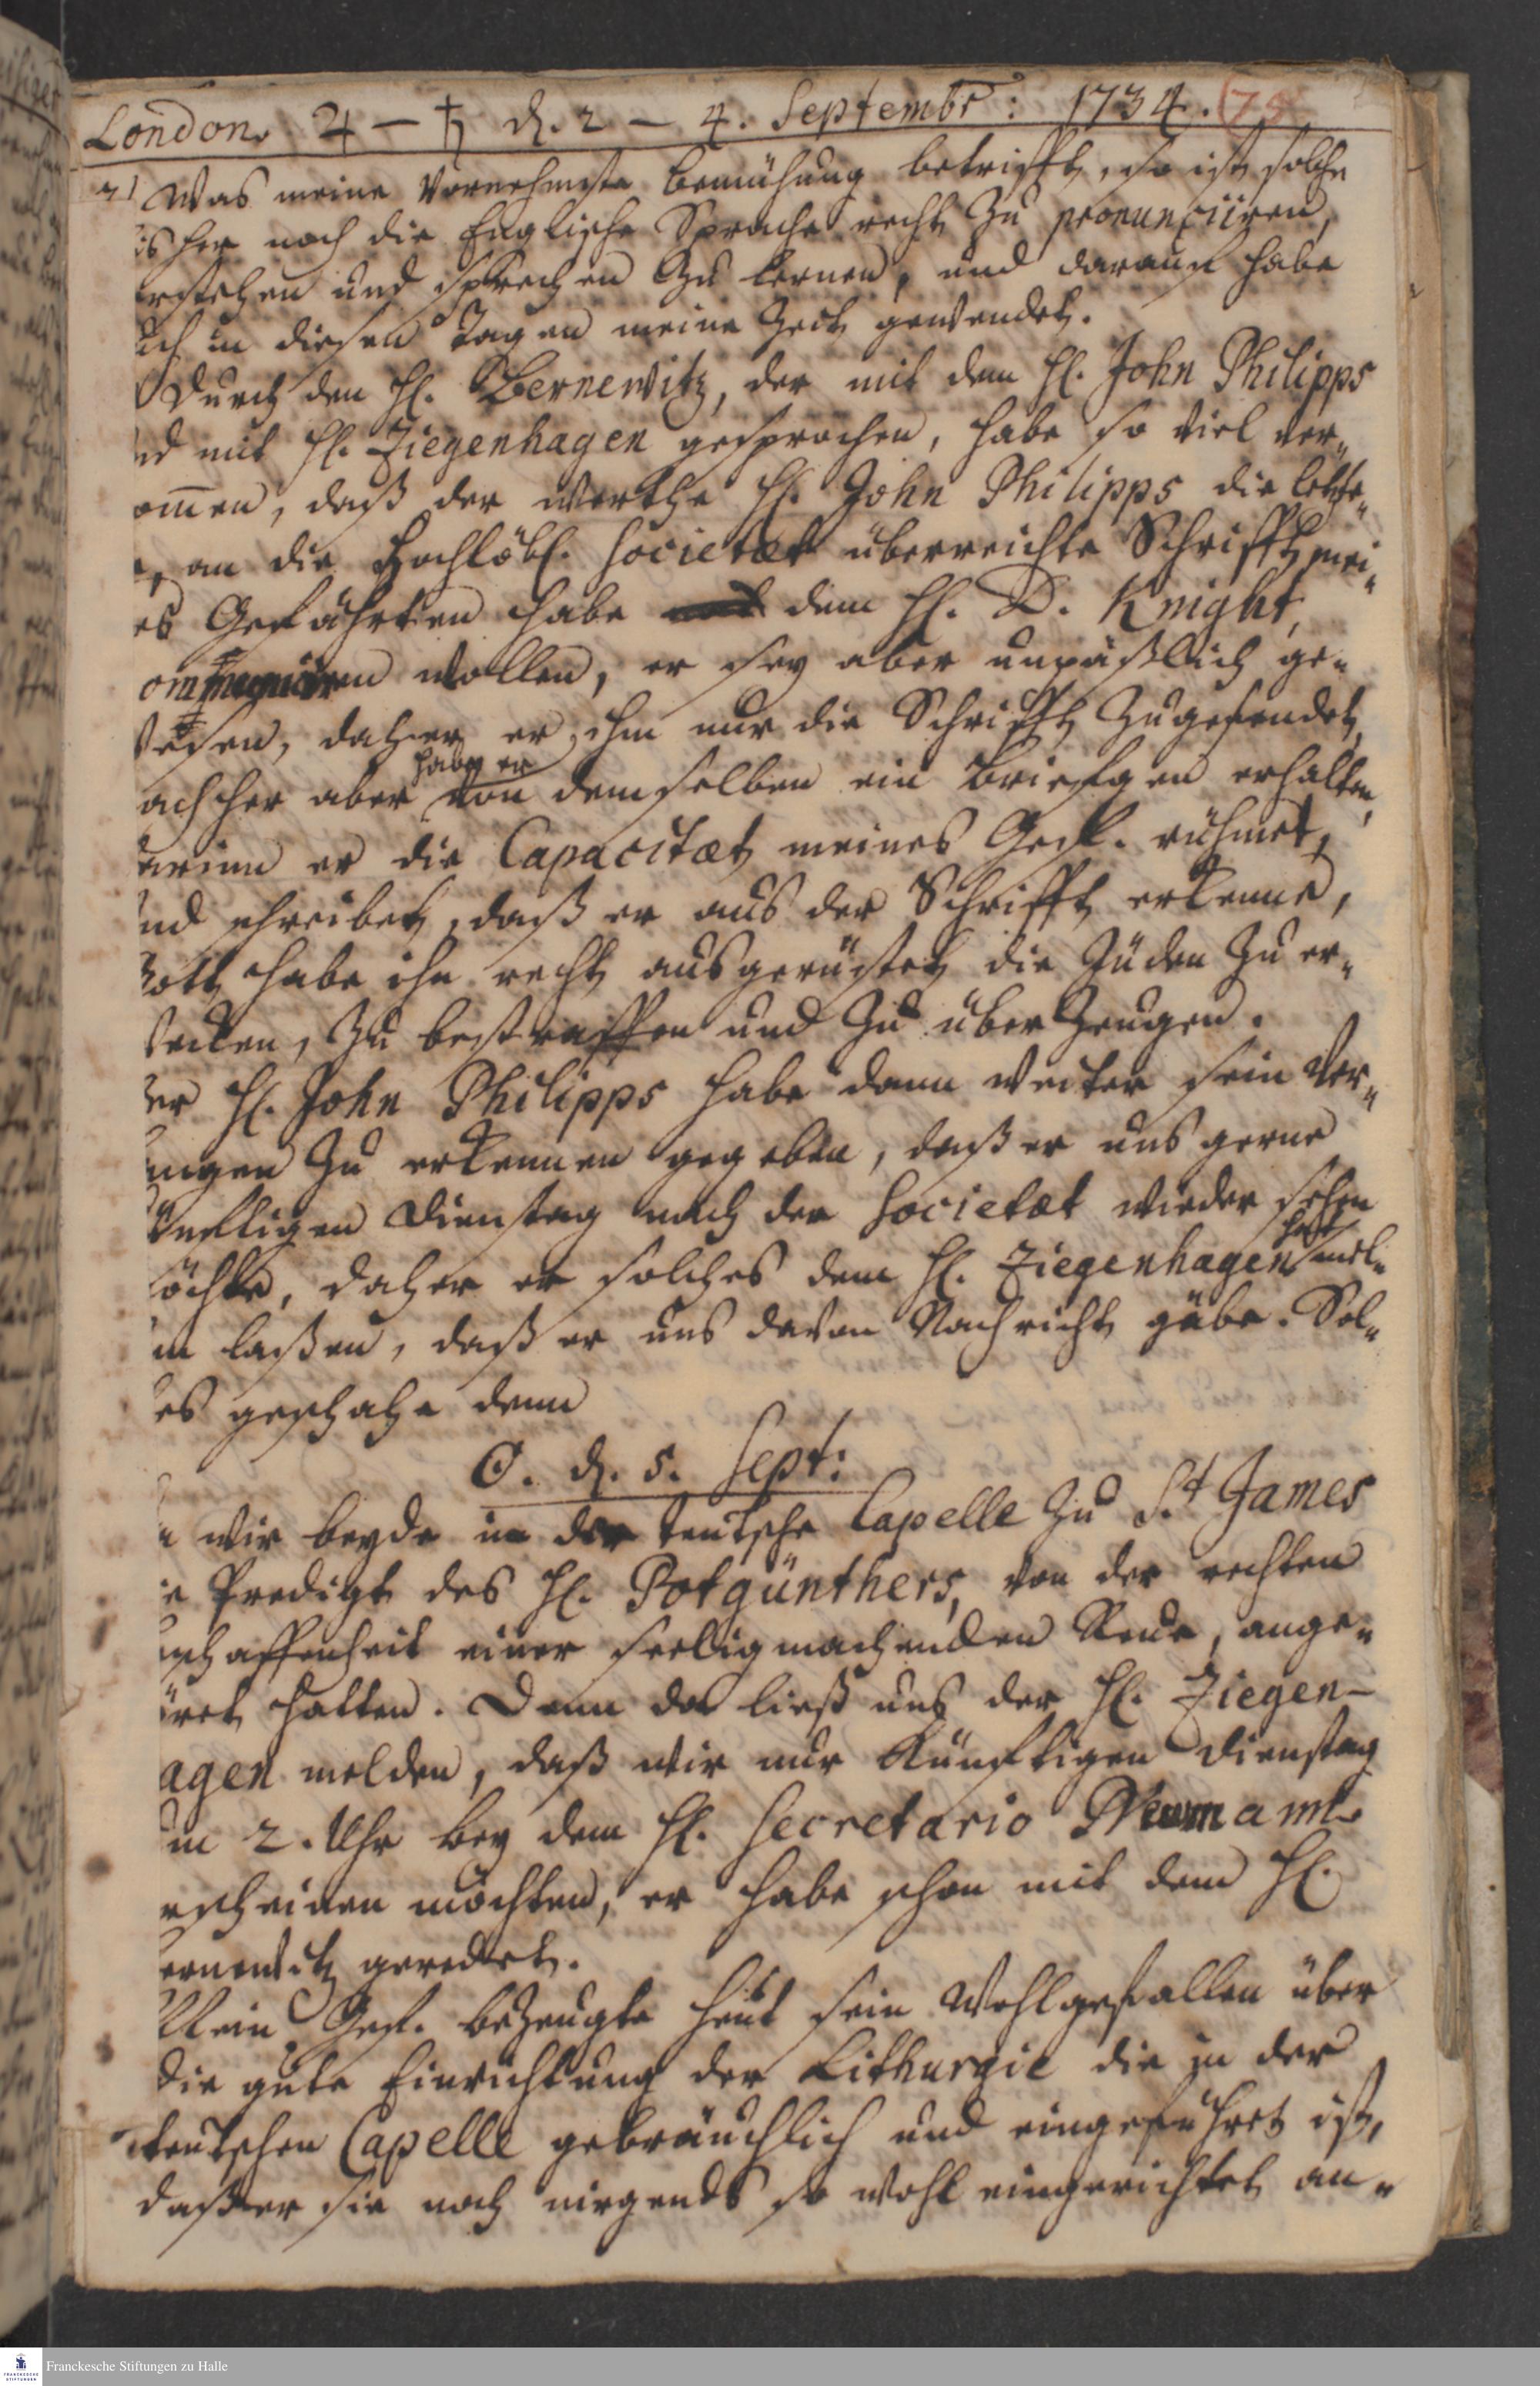 London. ♃ – ♄ d. 2 – 4. Septembr: 1734. (78
2) Was meine vornehmste Bemühung betrifft, so ist solche
isher noch die Englische Sprache recht zu pronunciiren,
erstehen und sprechen zu lernen, und darauf habe
uch in diesen Tagen meine Zeit gewendet.
Durch den H. Bernewitz, der mit dem H. John Philipps
nd mit H. Ziegenhagen gesprochen, habe so viel ver¬
ommen, daß der werthe H. John Philipps die letzte¬
, an die Hochlöbl. Societæt überreichte Schrifft mei¬
es Gefährten habe dem H. D. Knight,
ommuniciren wollen, er sey aber unpäßlich ge¬
wesen, daher er ihm nur die Schrifft zugesendet,
habe er
achher aber von demselben ein Briefgen erhalten,
arinn er die Capacitæt meines Gef. rühmet,
und schreibet, daß er aus der Schrifft erkenne,
Gott habe ihn recht ausgerüstet die Jüden zu er¬
wecken, zu bestraffen und zu überzeugen.
er H. John Philipps habe dann weiter sein Ver¬
ngen zu erkennen gegeben, daß er uns gerne
künfftigen Dienstag nach der Societæt wieder sehen
möchte, daher er solches dem H. Ziegenhagen hat mel¬
en laßen, daß er uns davon Nachricht gäbe. Sol¬
es geschahe denn
☉. d. 5. Sept:
a wir beyde in der teutsche Capelle zu St James
ie Predigt des H. Botgünthers, von der rechten
eschaffenheit einer seeligmachenden Reue, ange¬
öret hatten. Denn da ließ uns der H. Ziegen-
agen melden, daß wir nur künfftigen Dienstag
um 2. Uhr bey dem H. Secretario Neumann
rscheinen möchten, er habe schon mit dem H.
ernewitz geredet.
Mein Gef. bezeugte heut sein Wohlgefallen über
die gute Einrichtung der Lithurgie die in der
teutschen Capelle gebräuchlich und eingeführet ist,
daß er sie noch nirgends so wohl eingerichtet an¬
Franckesche Stiftungen zu Halle
FRANCKESCHE
STIFTUNGEN